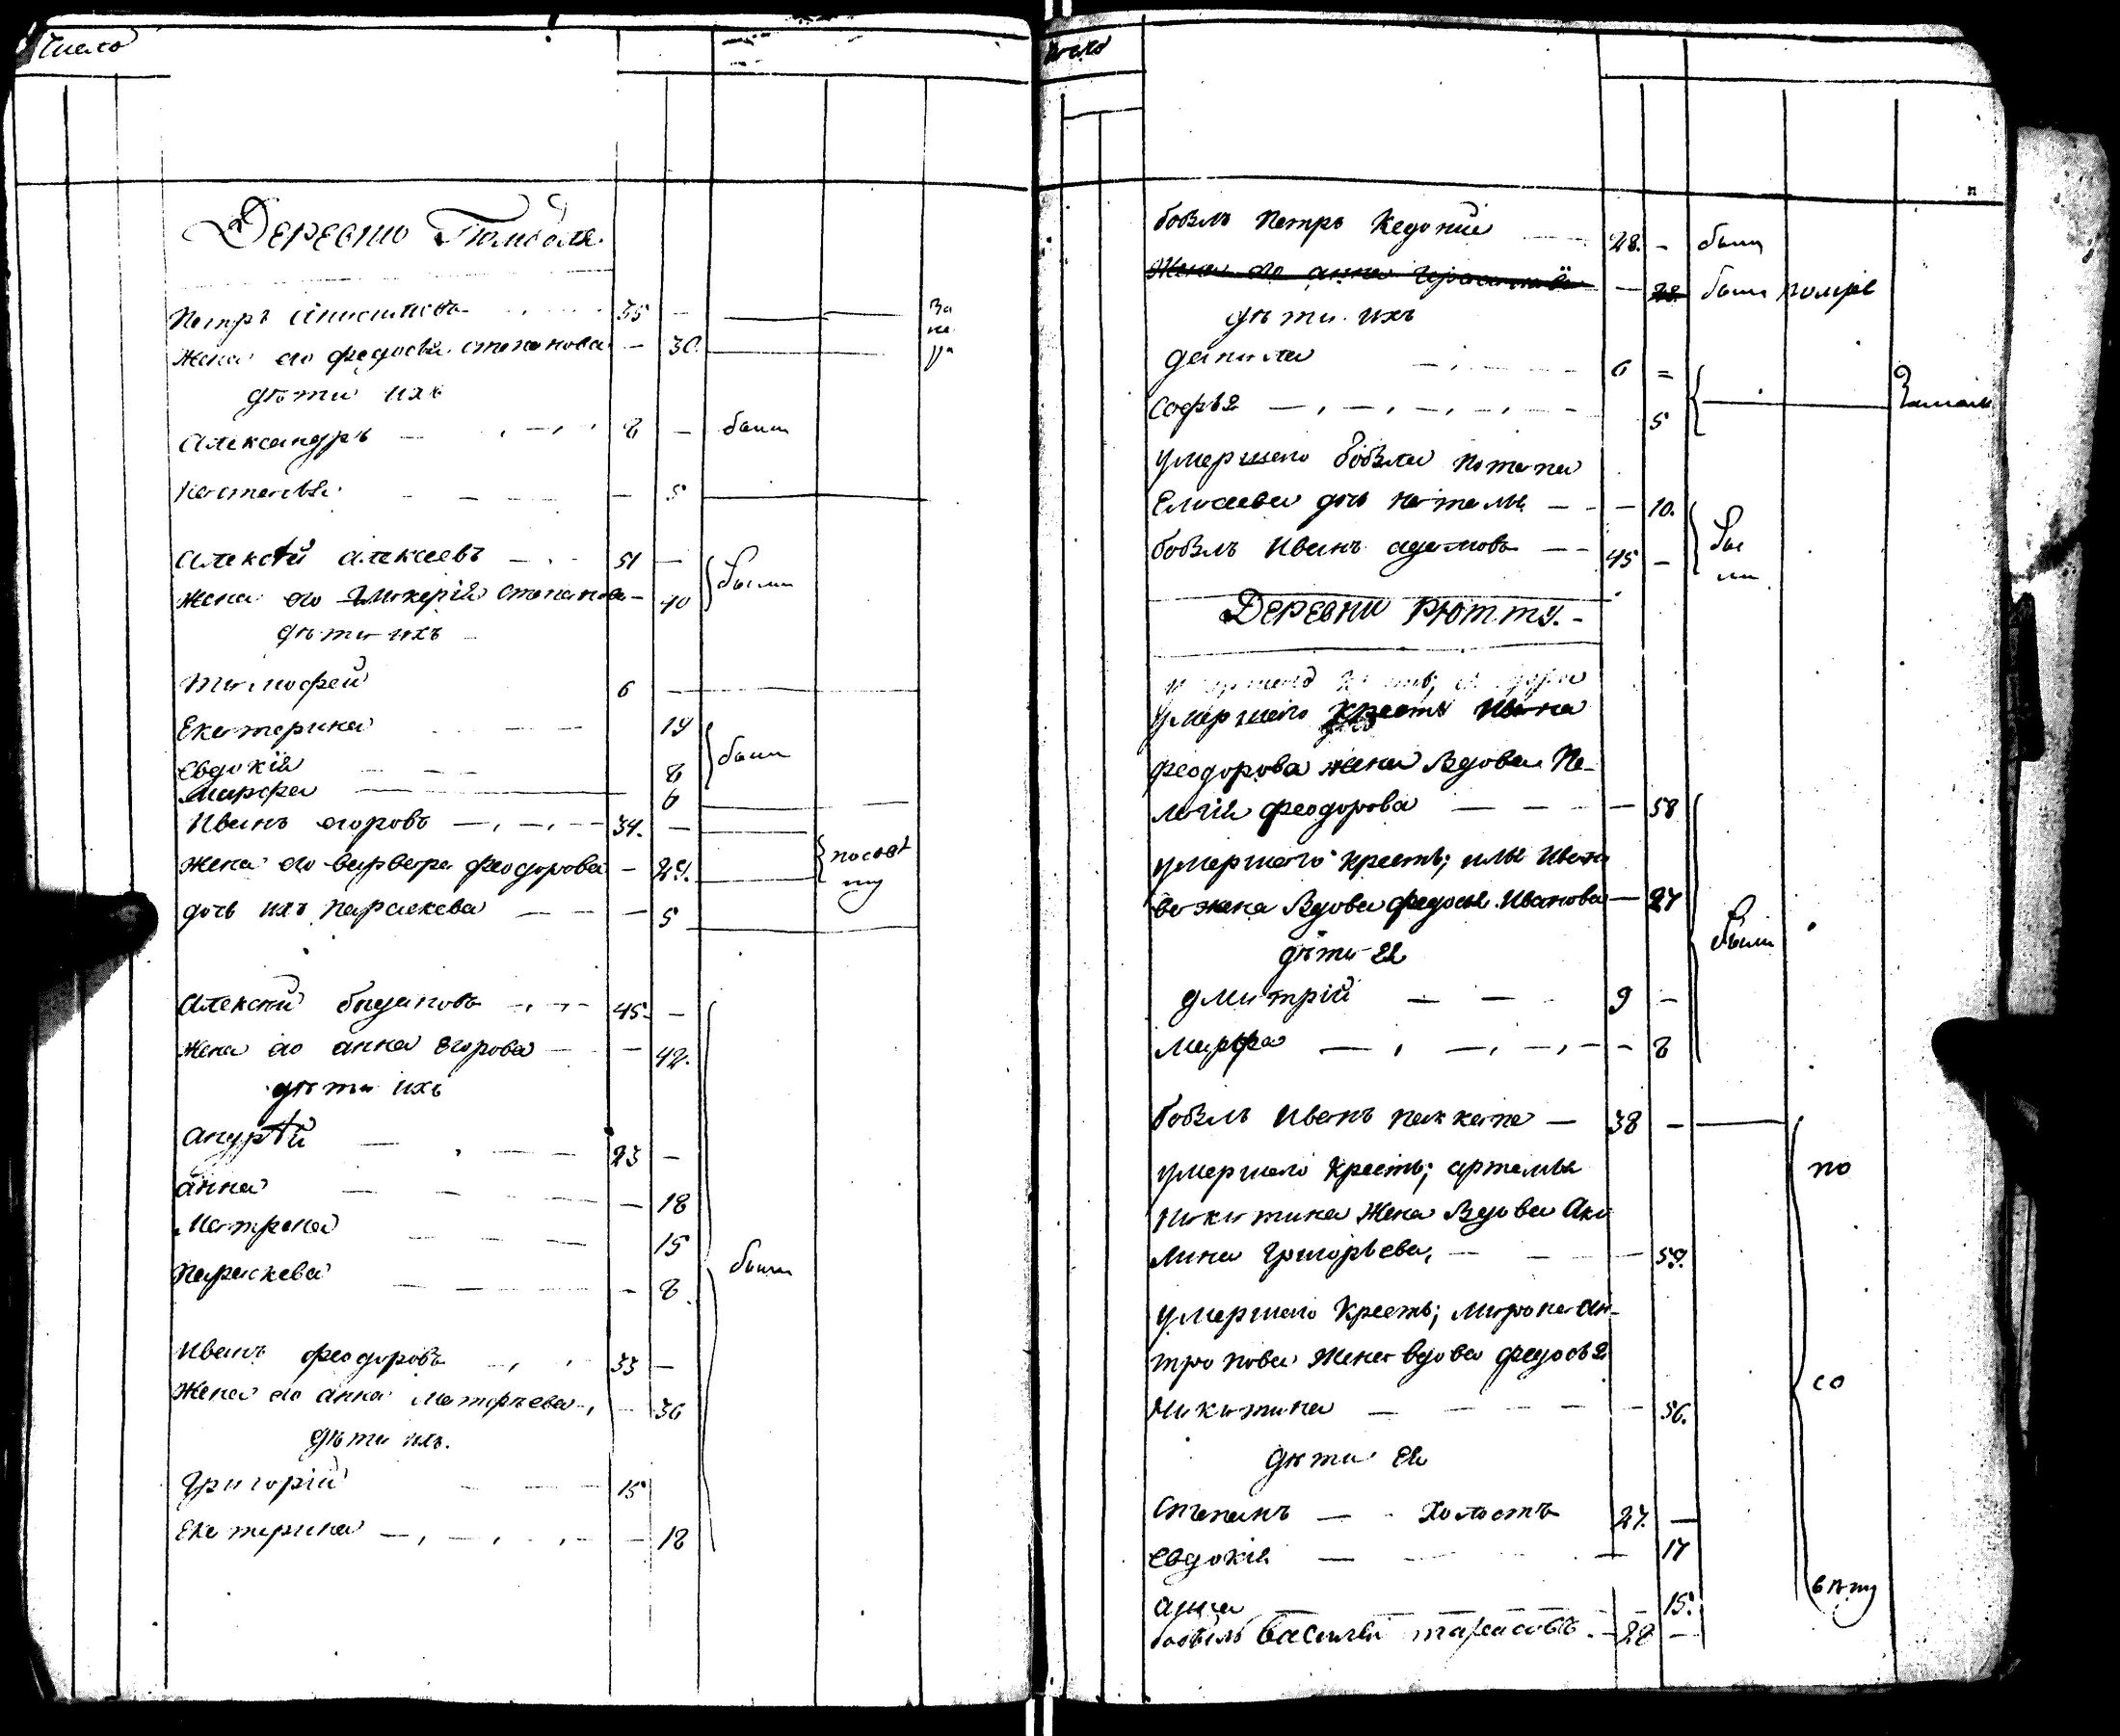 Число
Деревню
Петръ 35 — За
Жена его Федосья степанова — 30 не
дѣти ихъ
Александръ 8 — были
Настасья — 5
Алексѣй Алексеевъ 51 —
Жена его Гликерія степанова — 40 были
дѣти ихъ
Тимофей 6
Екатерина 14
Евдокія 8 были
Марфа 6
Иванъ егоровъ 34. —
Жена его варвара феодорова — 29.
дочь ихъ параскева — 5
Алексѣй 45. —
Жена его анна Егорова — 42.
дѣти ихъ
23 —
анна — 18
Матрена 15
Параскева — 8 были
Иванъ феодоровъ 33 —
Жена его анна — 36
дѣти ихъ.
Григорій 15
Екатерина — 18
Число
бобыль Петръ 28. — былъ
Жена его анна — 28. была помре
дѣти ихъ
данила 6 =
Софья 5
умершаго бобыля потапа
Елисеева дочь наталья — 10.
бобыль Иванъ адамовъ 45 — бы
ли
Деревни Рютту.
умершаго крестъ Ивана
феодорова жена вдова Пе-
лагія феодорова — 58
умершаго кресть; ильи Ивано
ва жена вдова федосья Иванова — 27
дѣти ея были
дмитрій 9 —
марфа — 8
бобыль Иванъ 38 —
умершаго кресть; артемья по
никитина Жена вдова Аку
лина григорьева, — 59.
умершаго крестъ; мирона Ан-
тропова Жена вдова федосья
со
Никитина — 56.
дѣти Ея
Степанъ — холостъ 27. —
Евдокія — 17
анна — 15.
бобыль василей тарасовъ. 28 —